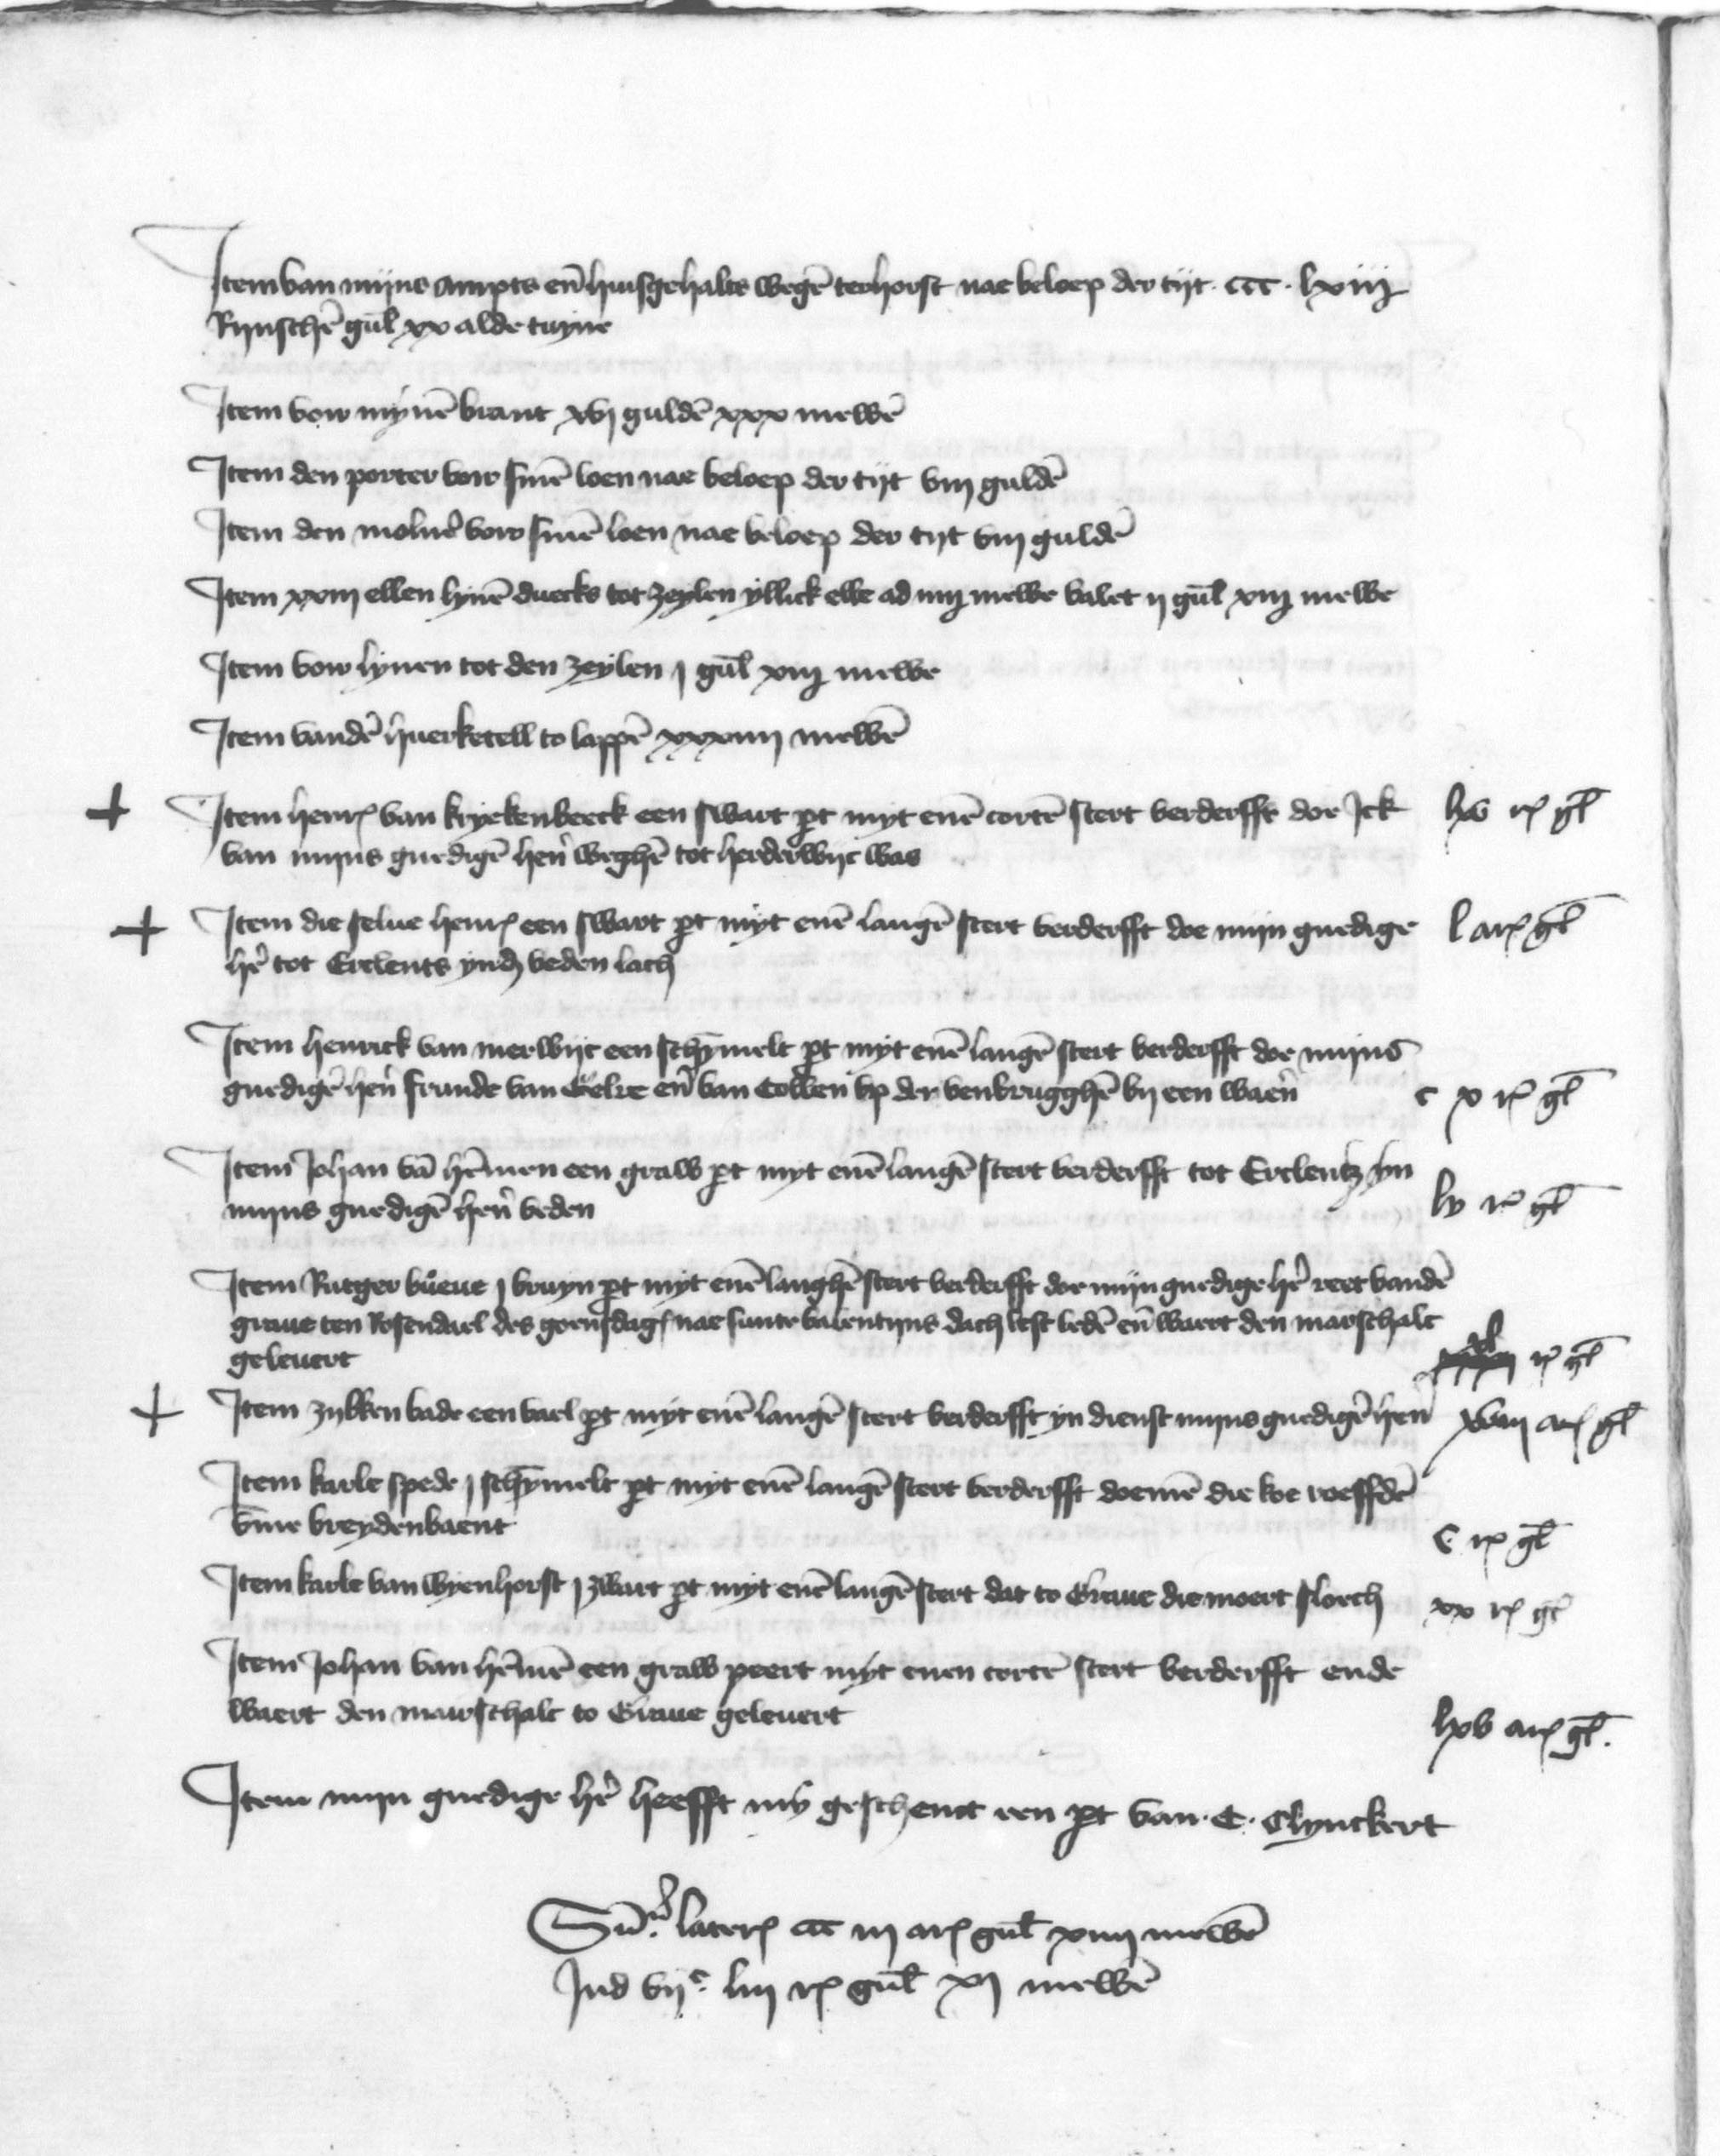 Item van mijns ampts en̄ huisgehalts wegē terhorst nae beloep der tijt · ccc · lxiij
Rijnschē gul̄ xx alde tuyne
Item vour mynē brant xvj guldē xxx niewē
Item den porter vour sinē loen nae beloep der tijt viij guldē
Item den molnē vour sinē loen nae beloep der tijt viij guldē
Item xxiij ellen lynē duecks tot zeylen yllick elle ad iiij niewe valet ij gul̄ xiij niewe
Item vour lynen tot den zeylen j gul̄ xiij niewe
Item vandē huerketell to lappē xxxiiij niewē
+ Item henr̄ van kryekenbeeck een swart p̄t myt enē cortē stert verderfft doe Ick lxv r̄ gl̄
van mijns gnedigē hen̄ weghē tot herderwijc was
+ Item die selue henr̄ een swart p̄t myt enē langē stert verderfft doe mijn gnedige l ar̄ gl̄
hē tot Erclents ynd̄ veden lach
Item henrick van merwijc een schymelt p̄t myt enē langē stert verderfft doe mijns
gnedigē hen̄ frunde van Gelre en̄ van Collen vp der venbrugghē by een waen̄ c x r̄ gl̄
Item Johan vā hēmen een graw p̄t myt enē langē stert verderfft tot Erclentz yn
mijns gnedigē hen̄ veden lv r̄ gl̄
Item Rutger bueue j bruyn p̄t myt enē langhē stert verderfft doe mijn gnedige hē reet vandē
graue ten Rosendael des goensdaḡ nae sunte valentijns dach lest ledē en̄ waert den marschalc
geleuert xl r̄ gl̄
+ Item zybken bade een vael p̄t myt enē langē stert verderfft yn dienst mijns gnedigē hen̄ xviij ar̄ gl̄
Item karle spede j schymelt p̄t myt enē langē stert verderfft doemē die koe roeffdē
vm̄e breydenbaent c r̄ gl̄
Item karle van wyenhorst j zwart p̄t myt enē langē stert dat to Graue die moert sloech xx r̄ gl̄
Item Johan van hēmē een graw peert myt enen cortē stert verderfft ende
waert den marschalc to Graue geleuert lxv ar̄ gl̄.
Item mijn gnedige hē heefft my geschenct een p̄t van · E · Clynckert
Sūm̄ᵃ later̄ cc iij ar̄ gul̄ xiiij niewē
Ind vijᶜ liij r̄ gul̄ xj niewē